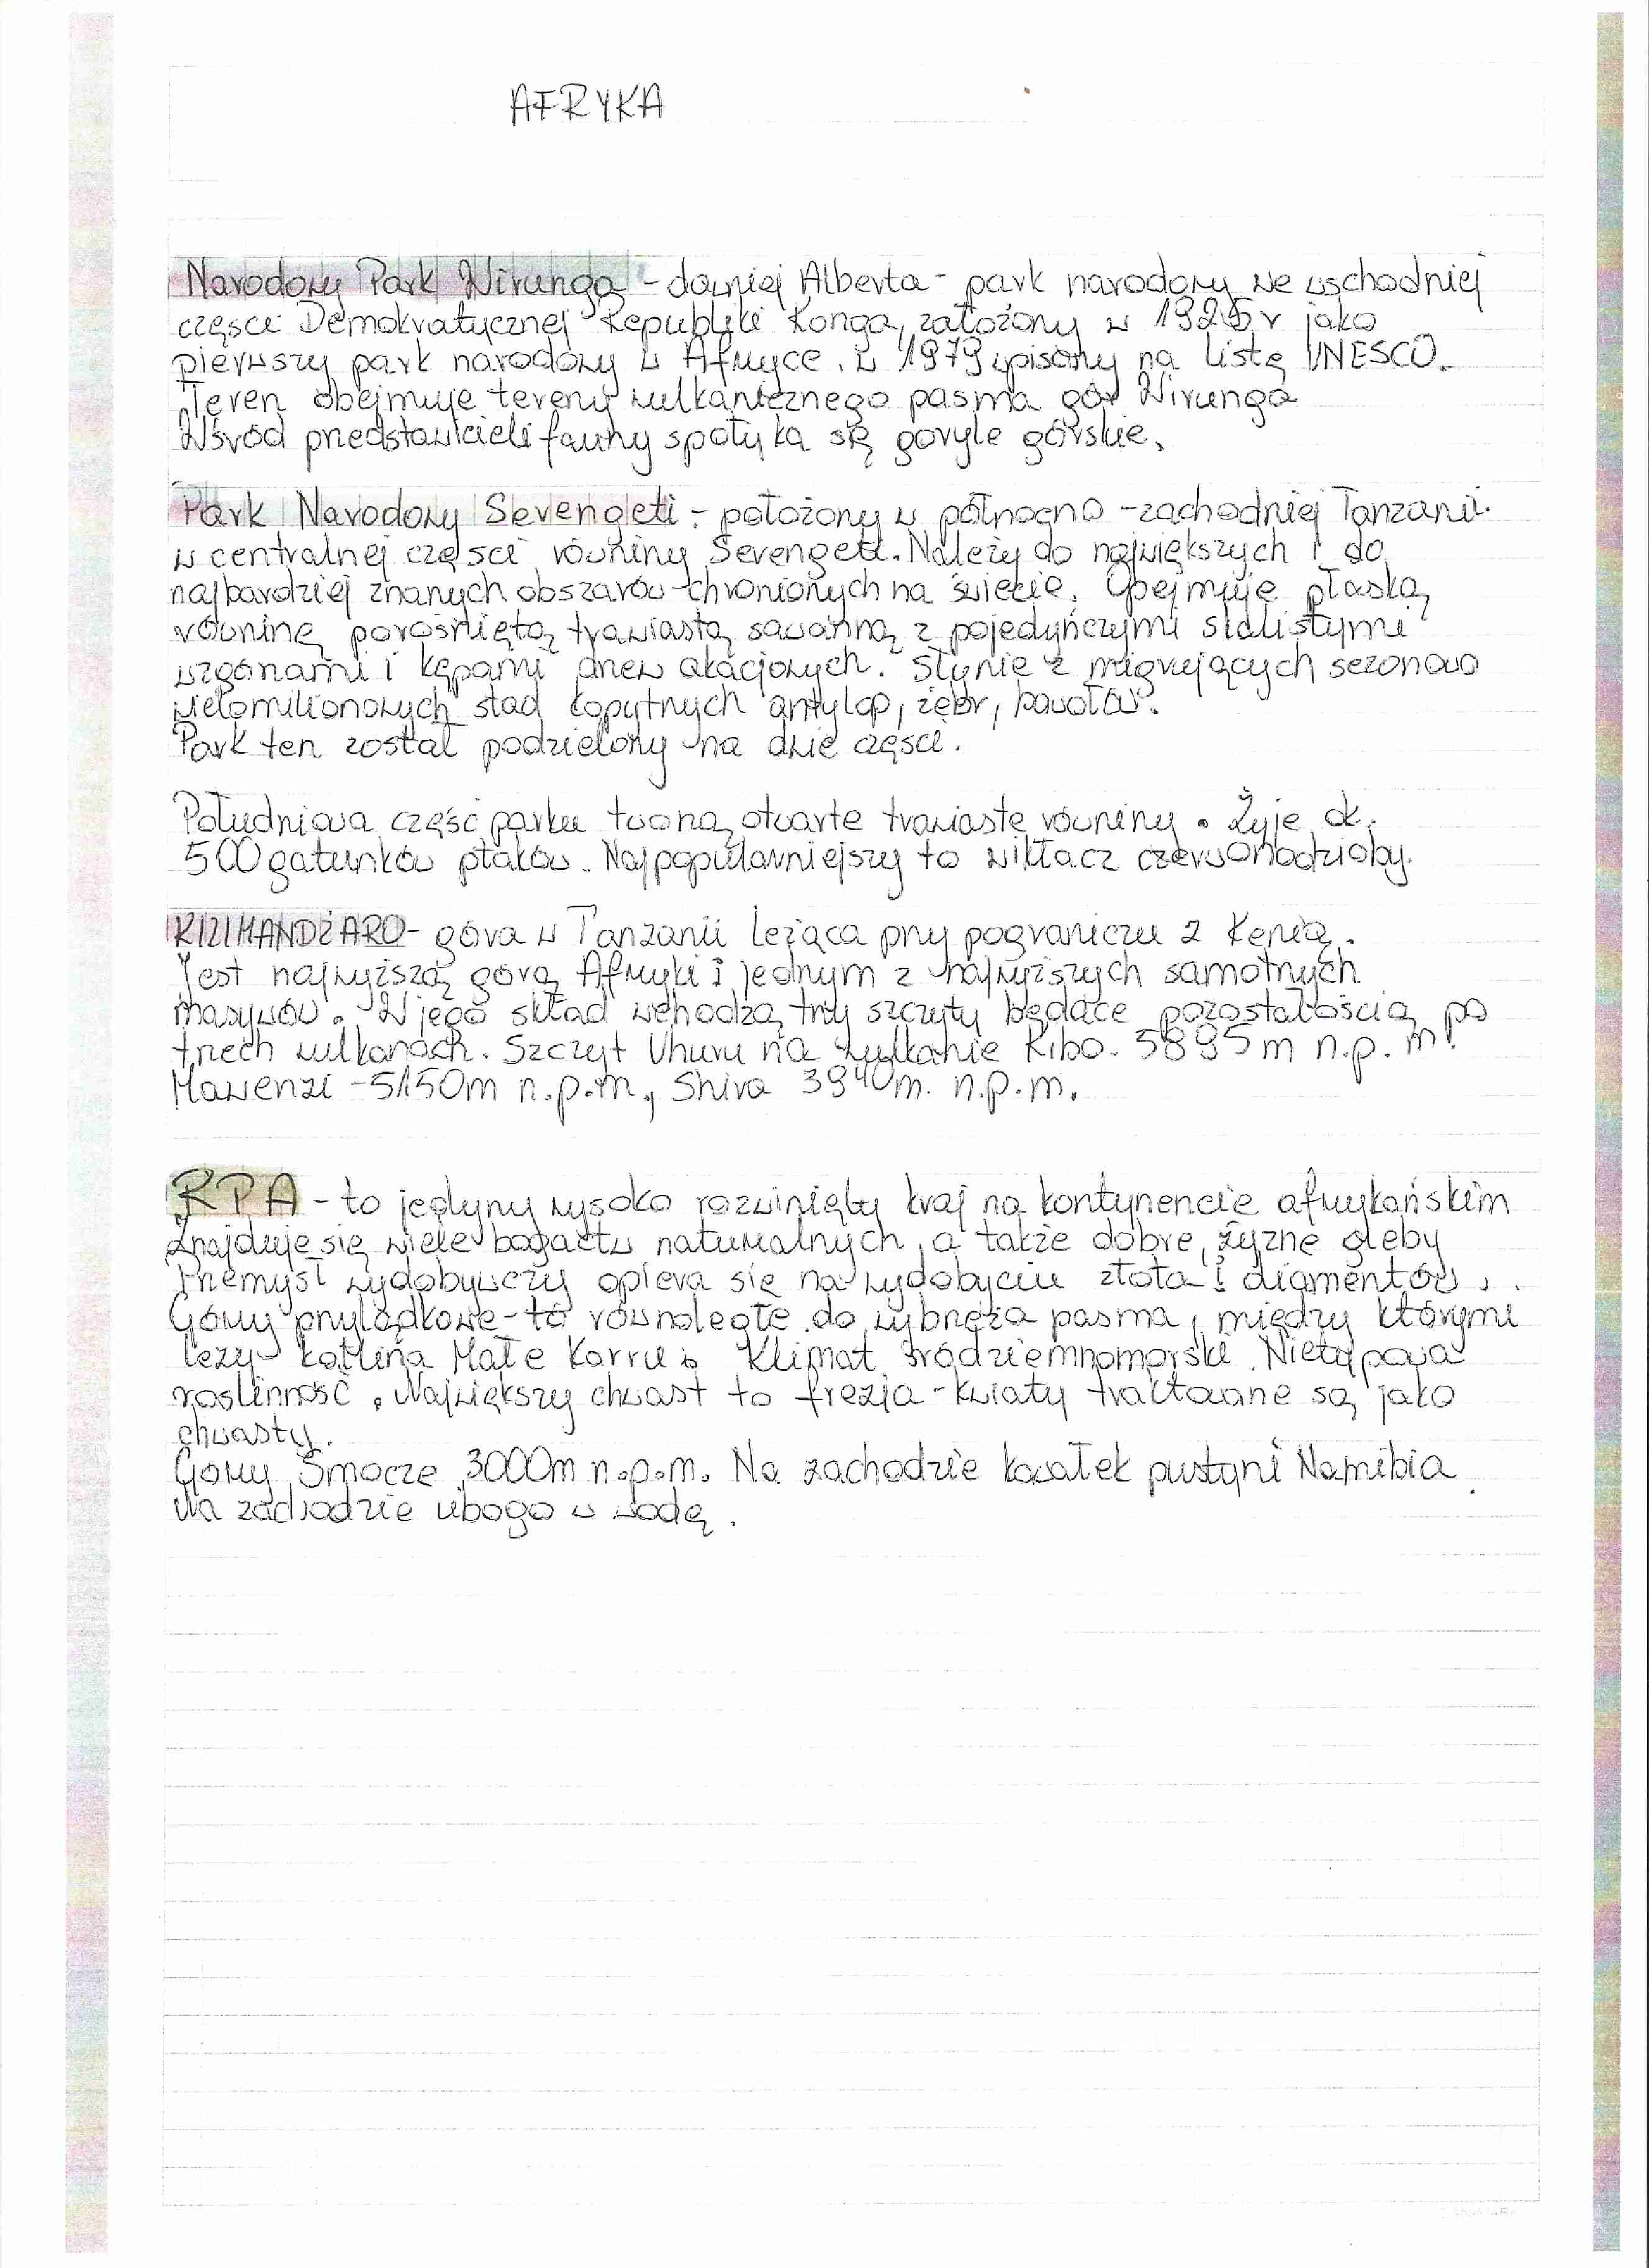 AFRYKA
Narodowy Park Wirunga - dawniej Alberta - park narodowy we wschodniej
części Demokratycznej Republiki Konga, założony w 1925 r jako
pierwszy park narodowy w Afryce. W 1979 wpisany na listę UNESCO.
Teren obejmuje tereny wulkanicznego pasma gór Wirunga
Wśród przedstawicieli fauny spotyka się goryle górskie.
Park Narodowy Serengeti - położony w północno - zachodniej Tanzanii.
w centralnej części równiny Serengeti. Należy do największych i do
najbardziej znanych obszarów chronionych na świecie. Obejmuje płaską
równinę porośniętą trawiastą sawanną z pojedyńczymi skalistymi
wzgórzami i kępami drzew akacjowych. Słynie z migrujących sezonowo
wielomilionowych stad kopytnych antylop, zebr, bawołów.
Park ten został podzielony na dwie części.
Południowa część parku tworzą otwarte trawiaste równiny. Żyje ok.
500 gatunków ptaków. Najpopularniejszy to wikłacz czerwonodzioby.
KILIMANDŻARO - góra w Tanzanii leżąca przy pograniczu z Kenią.
Jest najwyższą górą Afryki i jednym z najwyższych samotnych
masywów. W jego skład wchodzą trzy szczyty będące pozostałością po
trzech wulkanach. Szczyt Uhuru na wulkanie Kibo. 5895 m n.p.m.
Mawenzi - 5150m n.p.m, Shira 3940m. n.p.m.
RPA - to jedyny wysoko rozwinięty kraj na kontynencie afrykańskim
Znajduje się wiele bogactw naturalnych, a także dobre, żyzne gleby
Przemysł wydobywczy opiera się na wydobyciu złota i diamentów.
Góry przylądkowe - to równoległe do wybrzeża pasma, między którymi
leży kotlina Małe Karru. Klimat śródziemnomorski. Nietypowa
roślinność. Największy chwast to frezja - kwiaty traktowane są jako
chwasty.
Góry Smocze 3000m n.p.m. Na zachodzie kawałek pustyni Namibia.
Na zachodzie ubogo w wodę.